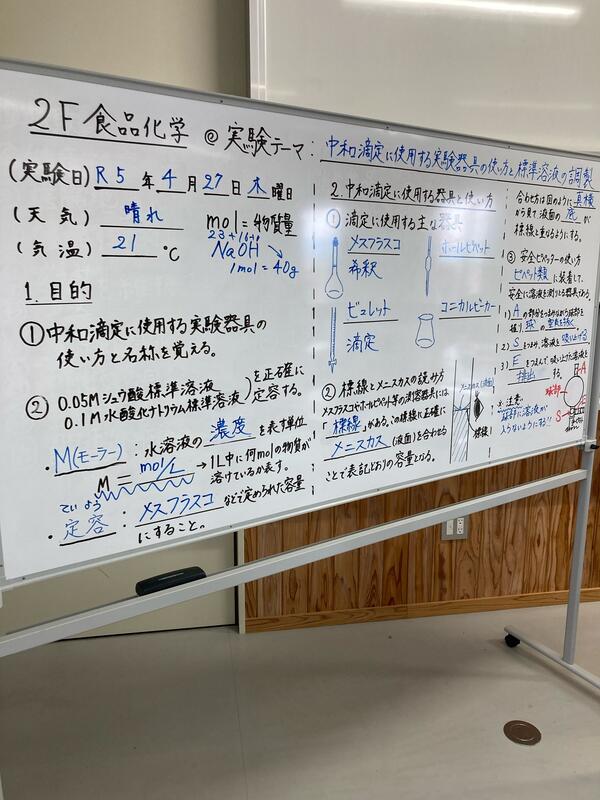 2F 食品化学 @ 実験テーマ: 中和滴定に使用する実験器具の使い方と標準溶液の調製
(実験日) R5 年 4 月 27 日 木 曜日
(天 気) 晴れ
(気 温) 21 ℃
mol=物質量
23+16+1
NaOH
1mol=40g
1. 目的
①中和滴定に使用する実験器具の
使い方と名称を覚える。
② 0.05Mシュウ酸標準溶液
0.1M水酸化ナトリウム標準溶液
を正確に
定容する。
・M(モーラー):水溶液の 濃度 を表す単位
M = mol/L →1L中に何molの物質が
溶けているか表す。
ていよう
・定容 : メスフラスコ などで定められた容量
にすること。
2. 中和滴定に使用する器具と使い方
① 滴定に使用する主な器具
メスフラスコ
希釈
ホールピペット
ビュレット
滴定
コニカルビーカー
② 標線とメニスカスの読み方
メスフラスコやホールピペット等の測容器具には
「標線」がある。この標線に正確に
メニスカス (液面)を合わせる
ことで表記どおりの容量となる。
メニスカス(液面)
標線
合わせ方は図のように真横
から見て液面の 底 が
標線と重なるようにする。
③ 安全ピペッターの使い方
ピペット類に装着して、
安全に溶液を測りとる器具である。
1) A の部分をつまみながら球部を
握り、球の空気を抜く
2) S をつまみ、溶液を吸い上げる
3) E をつまんで、吸い上げた溶液を
排出 する。
※注意・
球部に溶液が
入らないようにする!!
球部
A
S
E